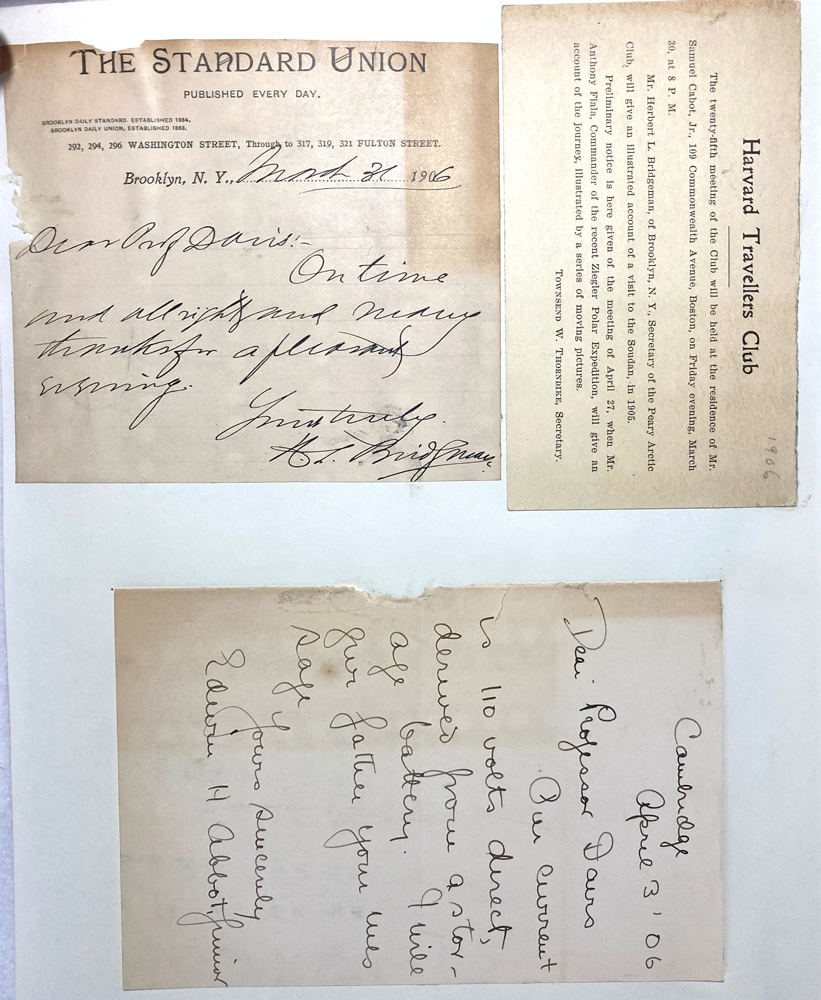 THE STANDARD UNION
PUBLISHED EVERY DAY.
BROOKLYN DAILY STANDARD, ESTABLISHED 1884.
BROOKLYN DAILY UNION, ESTABLISHED 1863.
292, 294, 296 WASHINGTON STREET, Through to 317, 319, 321 FULTON STREET.
Brooklyn, N. Y., March 31 1906
Dear Prof Davis:-
On time
and all right and many
thanks for a pleasant
evening.
Yours truly.
H. L. Bridgman
1906
Harvard Travellers Club
The twenty-fifth meeting of the Club will be held at the residence of Mr.
Samuel Cabot, Jr., 109 Commonwealth Avenue, Boston, on Friday evening, March
30, at 8 P. M.
Mr. Herbert L. Bridgeman, of Brooklyn, N. Y., Secretary of the Peary Arctic
Club, will give an illustrated account of a visit to the Soudan, in 1905.
Preliminary notice is here given of the meeting of April 27, when Mr.
Anthony Fiala, Commander of the recent Ziegler Polar Expedition, will give an
account of the journey, illustrated by a series of moving pictures.
TOWNSEND W. THORNDIKE, Secretary.
Cambridge
April 3 '06
Dear Professor Davis
Our current
is 110 volts direct,
derived from a stor-
age battery. I will
give father your mes
sage
Yours sincerely
Edwin H Abbot, Junior